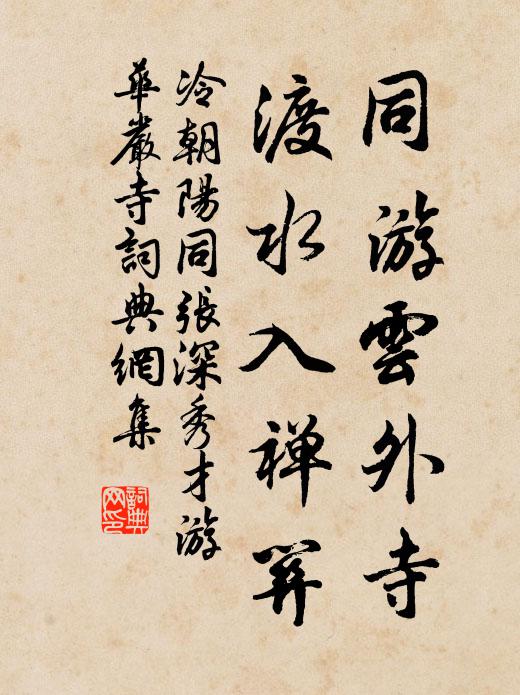 同游雲外寺
渡水入禅關
冷朝陽同張深秀才游
華嚴寺詞典網集
詞典
网印